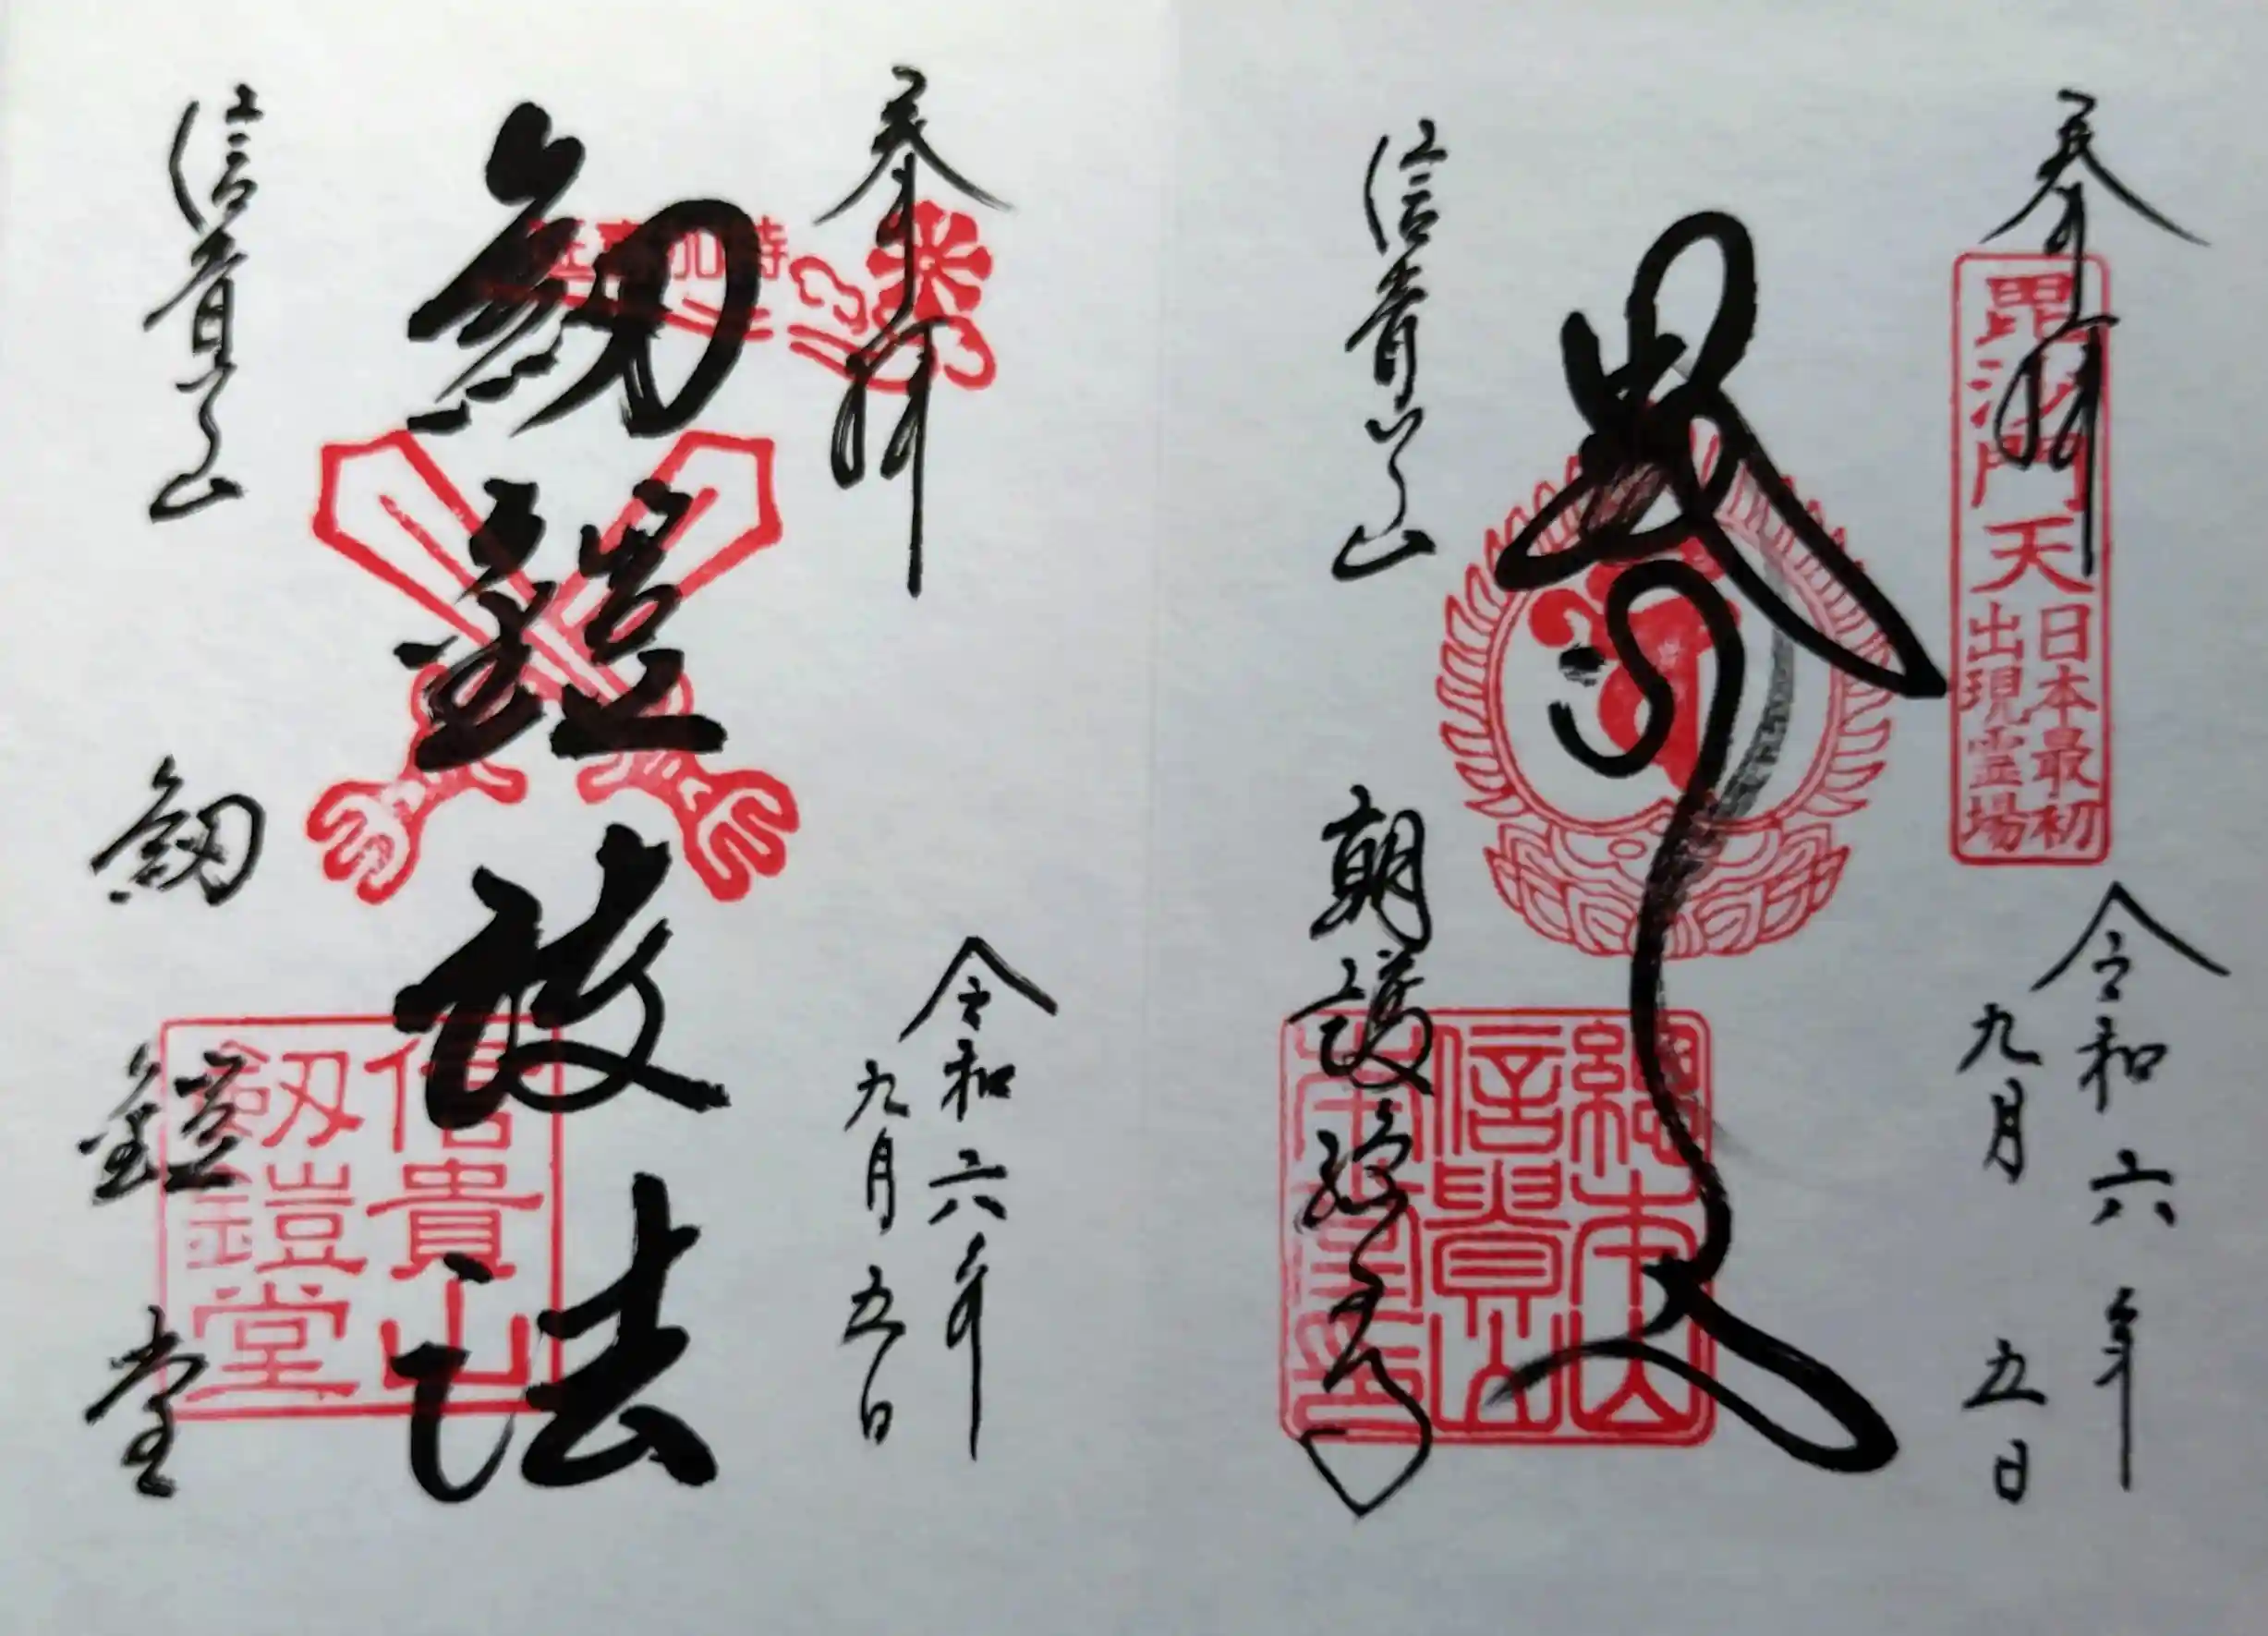 奉拝
毘沙門天
日本最初
出現霊場
令和六年
九月五日
總本山
信貴山
信貴山
朝護孫子寺
奉拝
延喜加持
令和六年
九月五日
釼鎧護法
信貴山
釼鎧堂
信貴山
釼鎧堂